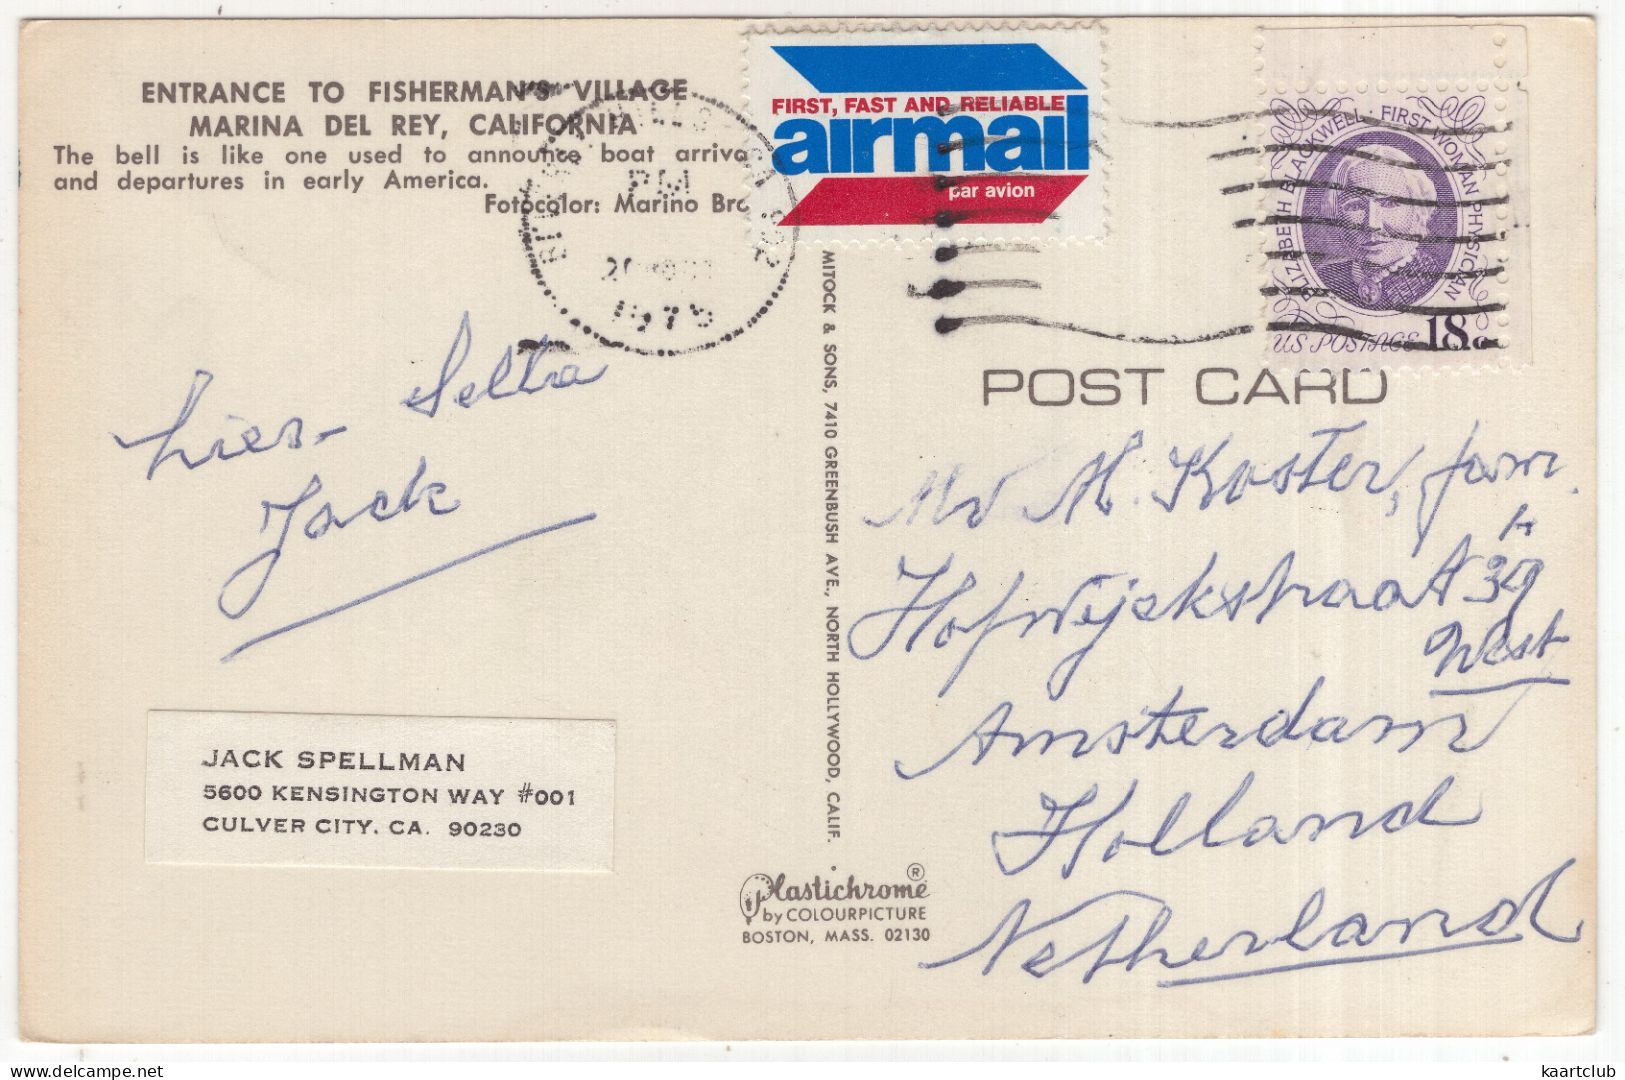 ENTRANCE TO FISHERMAN'S VILLAGE
MARINA DEL REY, CALIFORNIA
The bell is like one used to announce boat arriva
and departures in early America.
Fotocolor: Marino Bro
FIRST, FAST AND RELIABLE
airmail
par avion
ELIZABETH BLACKWELL · FIRST WOMAN PHYSICIAN
US POSTAGE 18c
PM
1975
POST CARD
Jack
JACK SPELLMAN
5600 KENSINGTON WAY #001
CULVER CITY, CA. 90230
MITOCK & SONS, 7410 GREENBUSH AVE., NORTH HOLLYWOOD, CALIF.
Plastichrome®
by COLOURPICTURE
BOSTON, MASS. 02130
H. Koster, fam.
Hofwijckstraat 39 H
West
Amsterdam
Holland
Netherland
kaartclub